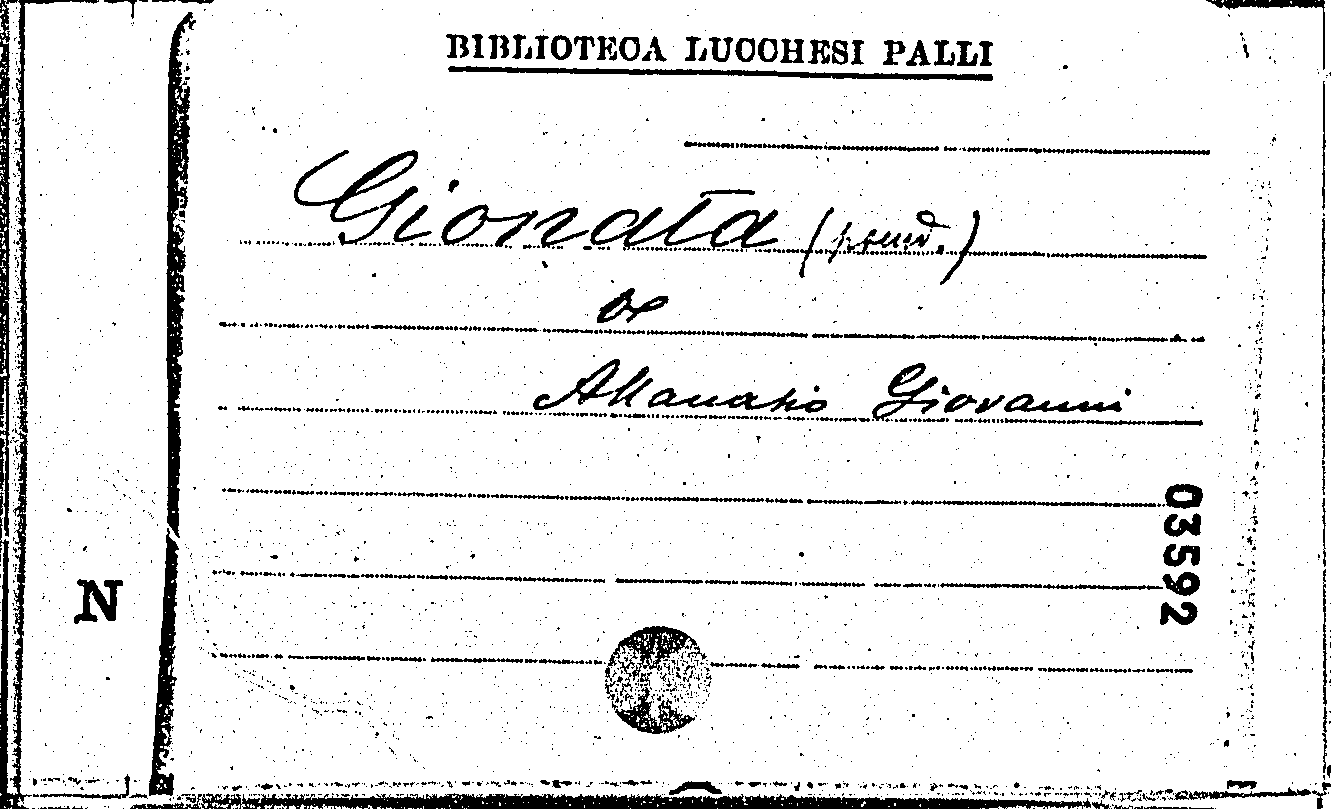 BIBLIOTECA LUCCHESI PALLI
Gionata (pseud.)
Attanasio Giovanni
03592
N